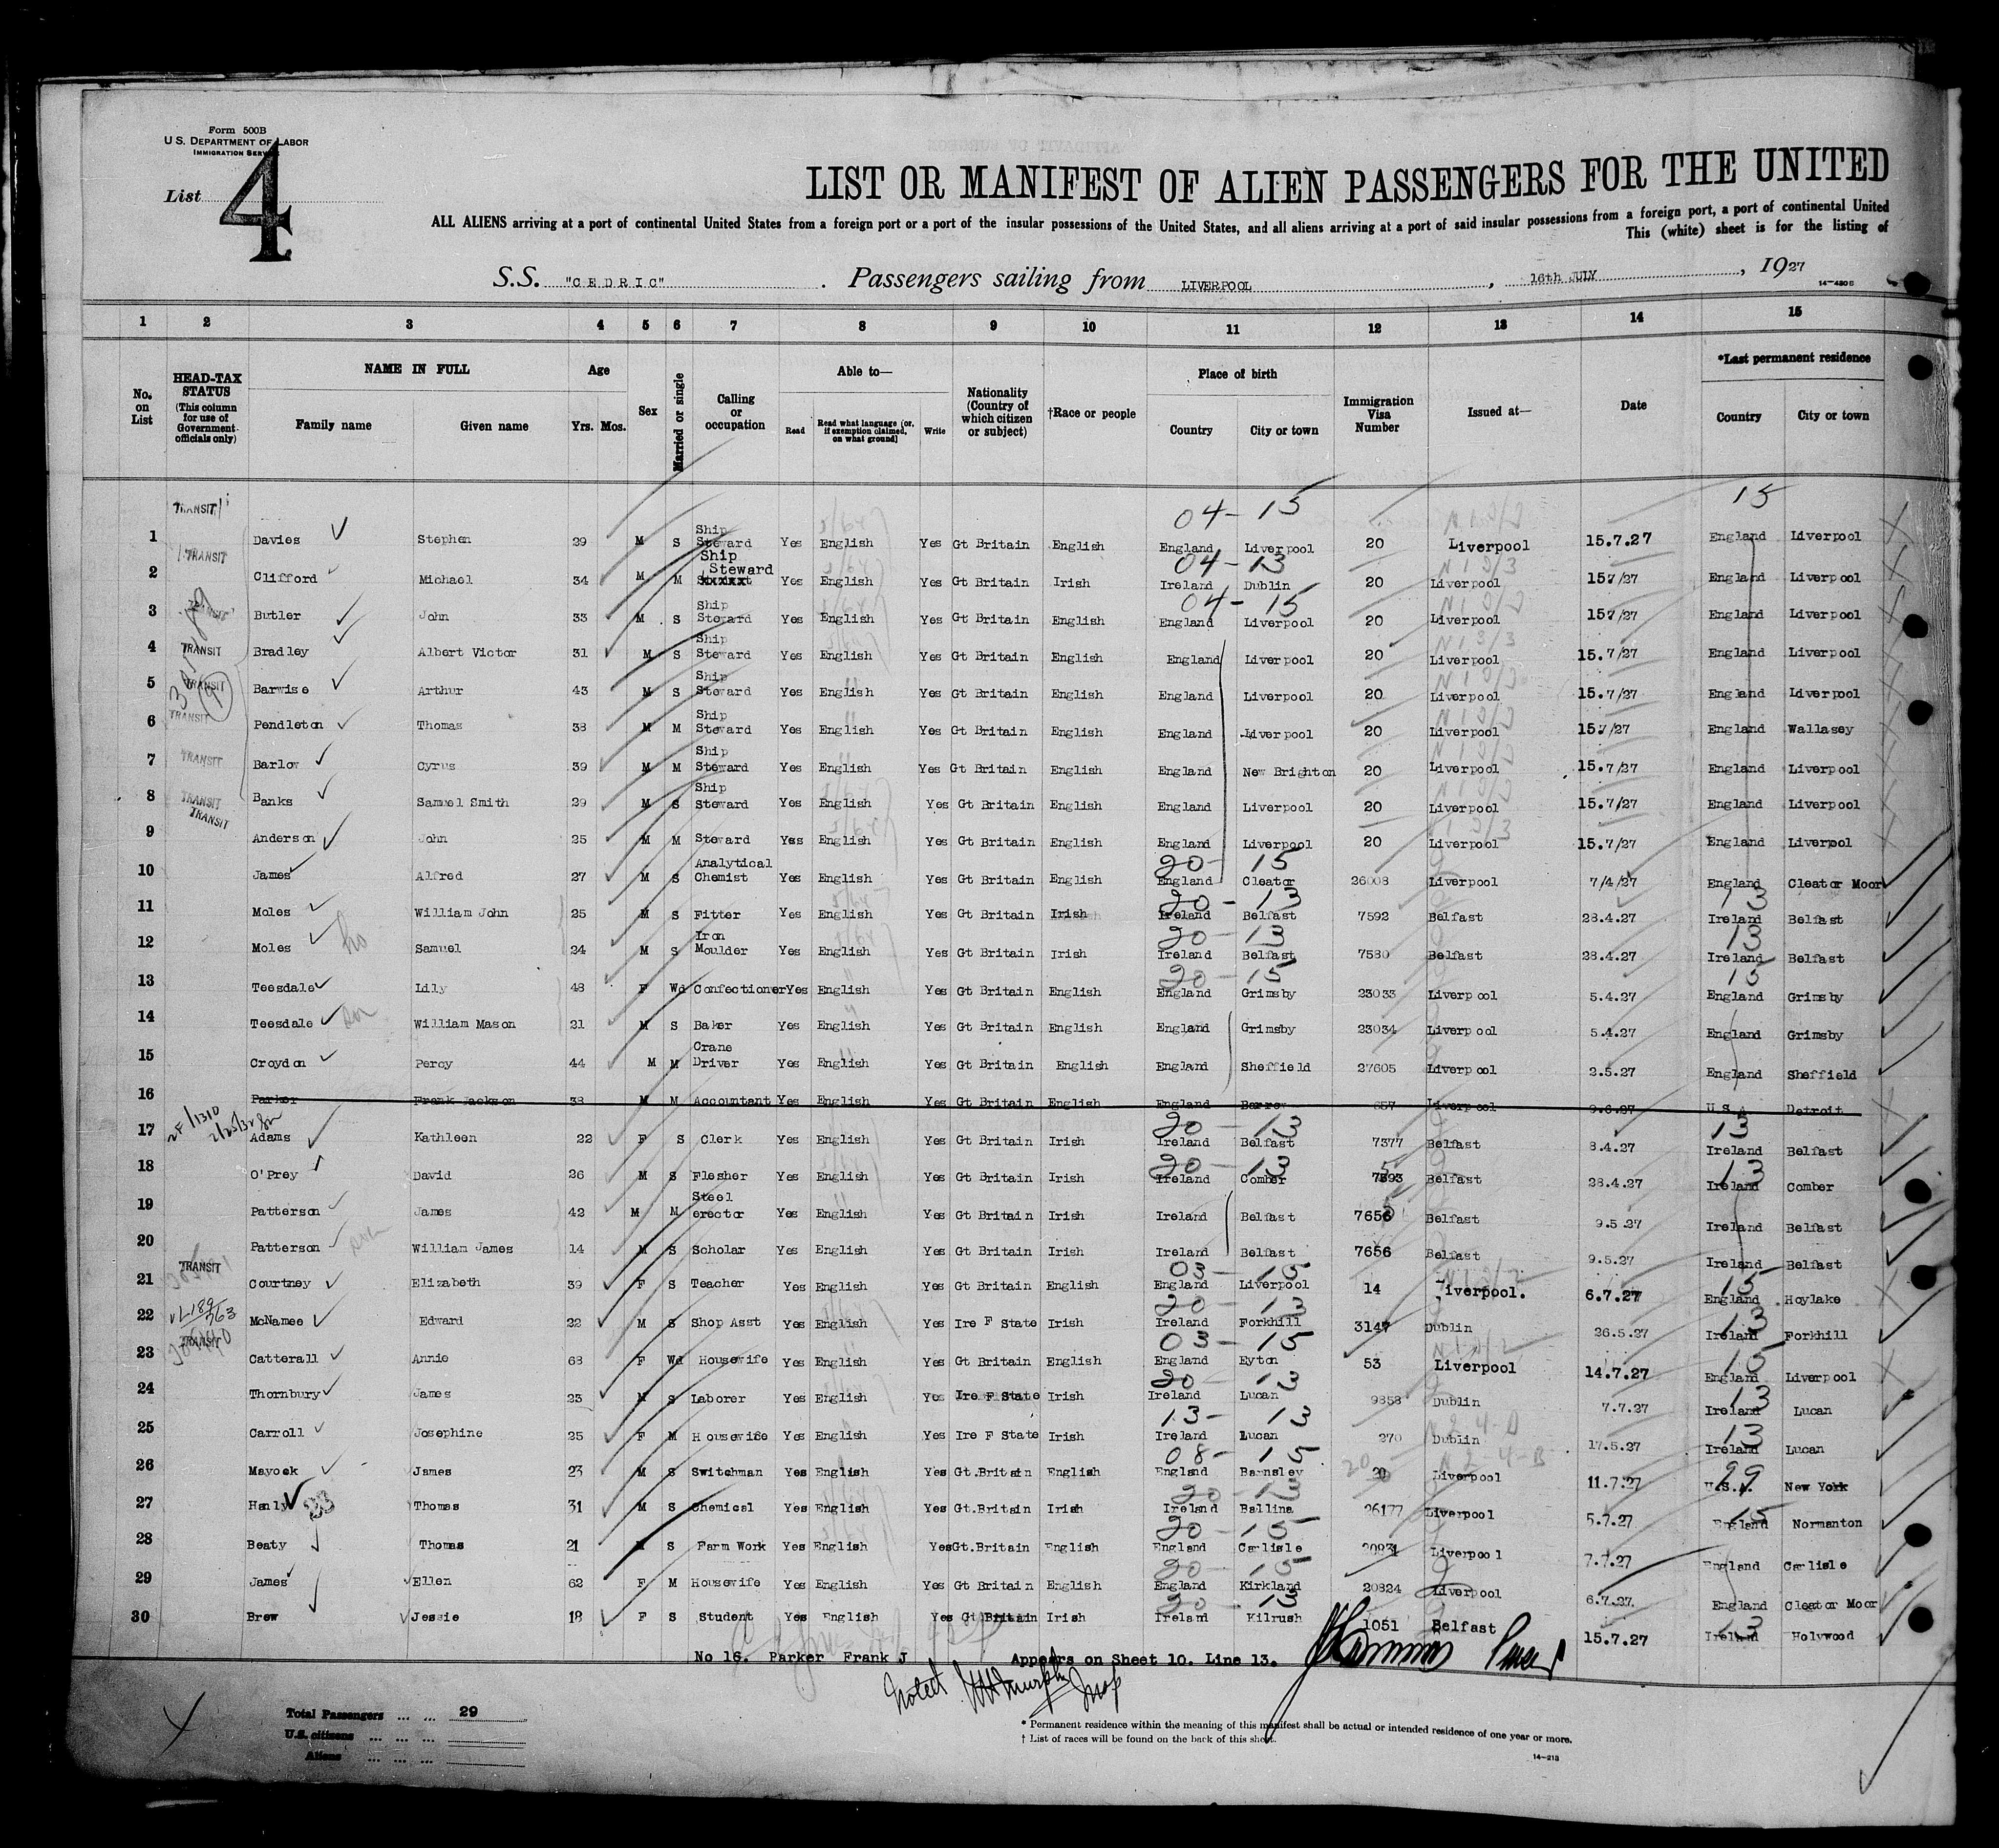 Form 500B
U.S. DEPARTMENT OF LABOR
IMMIGRATION SERVICE
List 4
LIST OR MANIFEST OF ALIEN PASSENGERS FOR THE UNITED
ALL ALIENS arriving at a port of continental United States from a foreign port or a port of the insular possessions of the United States, and all aliens arriving at a port of said insular possessions from a foreign port, a port of continental United
This (white) sheet is for the listing of
S.S. "CEDRIC" . Passengers sailing from LIVERPOOL , 16th JULY , 1927
14-430 B
1 2 3 4 5 6 7 8 9 10 11 12 13 14 15
No. on List
HEAD-TAX STATUS (This column for use of Government officials only)
NAME IN FULL Family name Given name
Age Yrs. Mos.
Sex
Married or single
Calling or occupation
Able to— Read Read what language [or, if exemption claimed, on what ground] Write
Nationality (Country of which citizen or subject)
†Race or people
Place of birth Country City or town
Immigration Visa Number
Issued at—
Date
*Last permanent residence Country City or town
TRANSIT 04-15 15
1 Davies Stephen 29 M S Ship Steward Yes English Yes Gt Britain English England Liverpool 20 Liverpool 15.7.27 England Liverpool
TRANSIT 04-13
2 Clifford Michael 34 M M Ship Steward Yes English Yes Gt Britain Irish Ireland Dublin 20 Liverpool 157/27 England Liverpool
04-15
3 Butler John 33 M S Ship Steward Yes English Yes Gt Britain English England Liverpool 20 Liverpool 157/27 England Liverpool
4 TRANSIT Bradley Albert Victor 31 M S Ship Steward Yes English Yes Gt Britain English England Liverpool 20 Liverpool 15.7/27 England Liverpool
5 TRANSIT Barwise Arthur 43 M S Ship Steward Yes English Yes Gt Britain English England Liverpool 20 Liverpool 15.7/27 England Liverpool
6 TRANSIT Pendleton Thomas 38 M M Ship Steward Yes English Yes Gt Britain English England Liverpool 20 Liverpool 15.7/27 England Wallasey
7 TRANSIT Barlow Cyrus 39 M M Ship Steward Yes English Yes Gt Britain English England New Brighton 20 Liverpool 15.7/27 England Liverpool
8 TRANSIT Banks Samuel Smith 29 M S Ship Steward Yes English Yes Gt Britain English England Liverpool 20 Liverpool 15.7/27 England Liverpool
TRANSIT
9 Anderson John 25 M M Steward Yes English Yes Gt Britain English England Liverpool 20 Liverpool 15.7/27 England Liverpool
20-15
10 James Alfred 27 M S Analytical Chemist Yes English Yes Gt Britain English England Cleator 26008 Liverpool 7/4/27 England Cleator Moor
20-13 13
11 Moles William John 25 M S Fitter Yes English Yes Gt Britain Irish Ireland Belfast 7592 Belfast 28.4.27 Ireland Belfast
20-13 13
12 Moles Samuel 24 M S Iron Moulder Yes English Yes Gt Britain Irish Ireland Belfast 7580 Belfast 28.4.27 Ireland Belfast
20-15 15
13 Teesdale Lily 48 F Wd Confectioner Yes English Yes Gt Britain English England Grimsby 23033 Liverpool 5.4.27 England Grimsby
14 Teesdale William Mason 21 M S Baker Yes English Yes Gt Britain English England Grimsby 23034 Liverpool 5.4.27 England Grimsby
15 Croydon Percy 44 M M Crane Driver Yes English Yes Gt Britain English England Sheffield 27605 Liverpool 2.5.27 England Sheffield
16 Parker Frank Jackson 38 M M Accountant Yes English Yes Gt Britain English England Barrow 657 Liverpool 9.6.27 U.S.A. Detroit
20-13 13
17 Adams Kathleen 22 F S Clerk Yes English Yes Gt Britain Irish Ireland Belfast 7377 Belfast 8.4.27 Ireland Belfast
20-13 13
18 O'Prey David 26 M S Flesher Yes English Yes Gt Britain Irish Ireland Comber 7593 Belfast 28.4.27 Ireland Comber
19 Patterson James 42 M M Steel erector Yes English Yes Gt Britain Irish Ireland Belfast 7656 Belfast 9.5.27 Ireland Belfast
20 Patterson William James 14 M S Scholar Yes English Yes Gt Britain Irish Ireland Belfast 7656 Belfast 9.5.27 Ireland Belfast
TRANSIT 03-15 15
21 Courtney Elizabeth 39 F S Teacher Yes English Yes Gt Britain English England Liverpool 14 Liverpool. 6.7.27 England Hoylake
20-13 13
22 McNamee Edward 22 M S Shop Asst Yes English Yes Ire F State Irish Ireland Forkhill 3147 Dublin 26.5.27 Ireland Forkhill
TRANSIT 03-15 15
23 Catterall Annie 68 F Wd Housewife Yes English Yes Gt Britain English England Eyton 53 Liverpool 14.7.27 England Liverpool
20-13 13
24 Thornbury James 23 M S Laborer Yes English Yes Ire F State Irish Ireland Lucan 9858 Dublin 7.7.27 Ireland Lucan
13-13 13
25 Carroll Josephine 25 F M Housewife Yes English Yes Ire F State Irish Ireland Lucan 270 Dublin 17.5.27 Ireland Lucan
08-15 99
26 Mayock James 23 M S Switchman Yes English Yes Gt.Britain English England Barnsley 20 Liverpool 11.7.27 U.S.A. New York
20-13 15
27 Hanly Thomas 31 M S Chemical Yes English Yes Gt.Britain Irish Ireland Ballina 26177 Liverpool 5.7.27 England Normanton
20-15
28 Beaty Thomas 21 M S Farm Work Yes English Yes Gt.Britain English England Carlisle Liverpool 7.7.27 England Carlisle
20-15
29 James Ellen 62 F M Housewife Yes English Yes Gt Britain English England Kirkland 20824 Liverpool 6.7.27 England Cleator Moor
20-13 13
30 Brew Jessie 18 F S Student Yes English Yes Gt Britain Irish Ireland Kilrush 1051 Belfast 15.7.27 Ireland Holywood
No 16. Parker Frank J Appears on Sheet 10. Line 13.
Noted Murphy Insp
Total Passengers ... ... 29
U.S. citizens ... ... ...
Aliens ... ... ...
* Permanent residence within the meaning of this manifest shall be actual or intended residence of one year or more.
† List of races will be found on the back of this sheet.
14-213